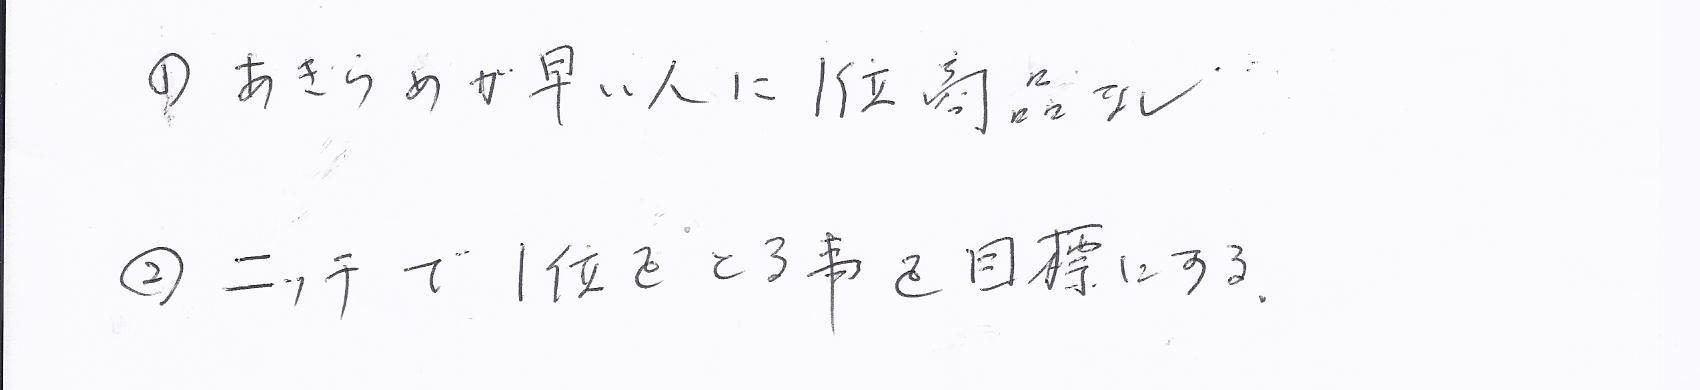 ① あきらめが早い人に1位商品なし
② ニッチで1位をとる事を目標にする.